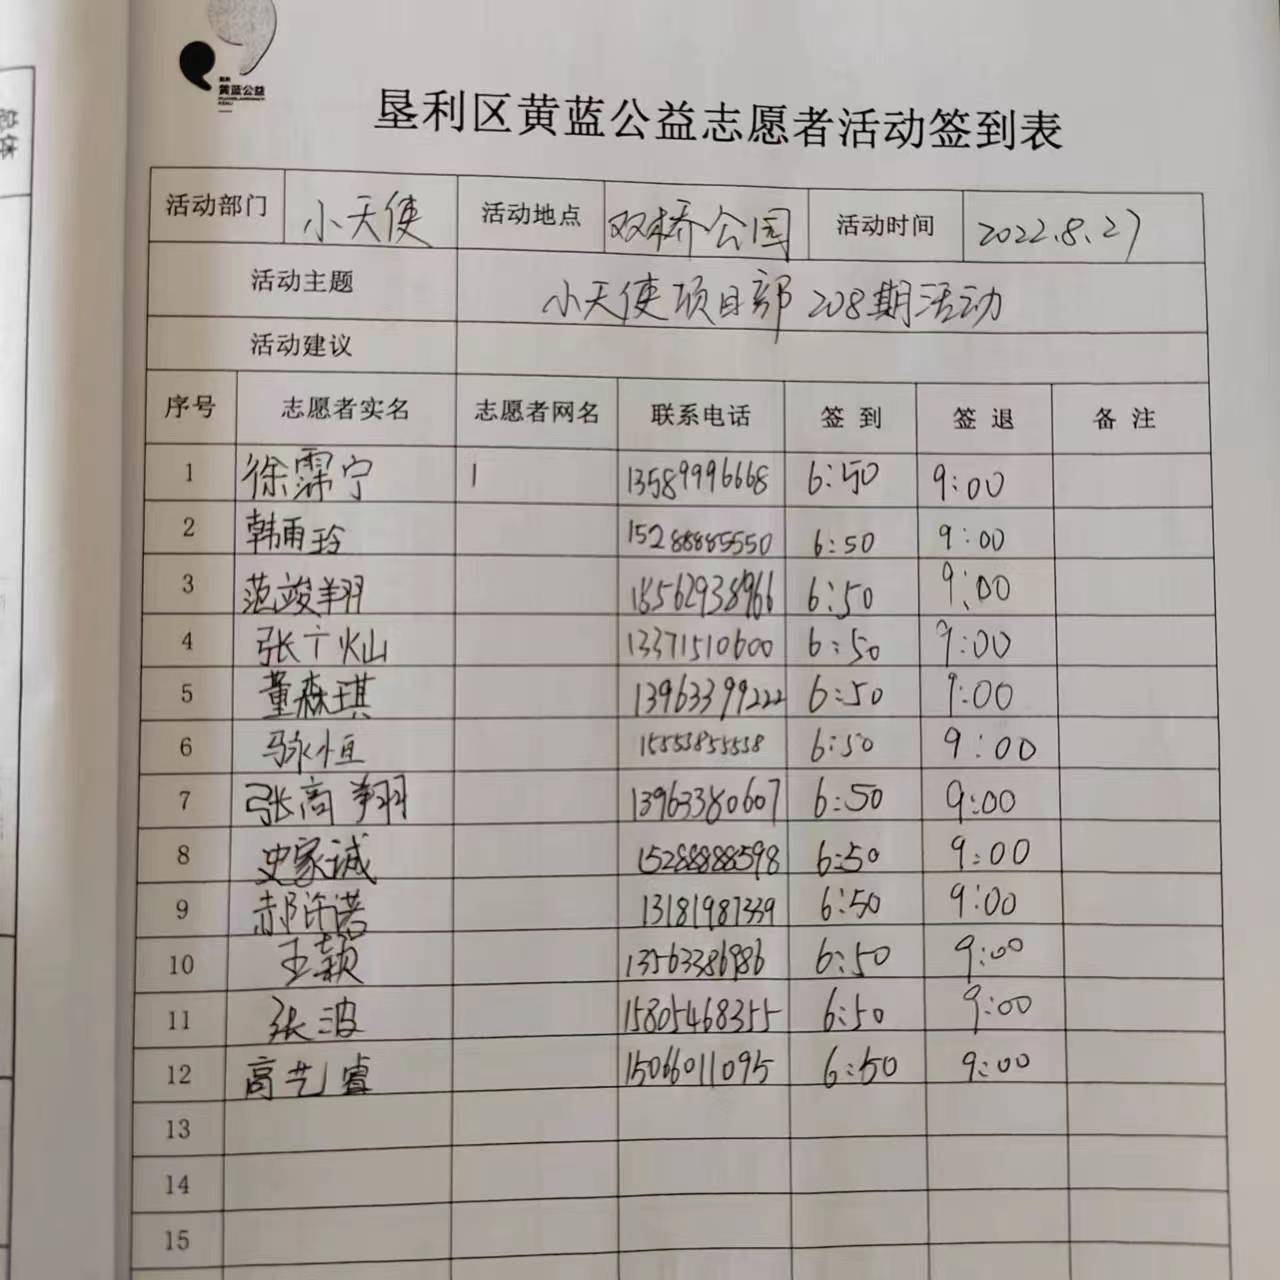 黄蓝公益
垦利区黄蓝公益志愿者活动签到表
活动部门 小天使 活动地点 双桥公园 活动时间 2022.8.27
活动主题 小天使项目部 208期活动
活动建议
序号 志愿者实名 志愿者网名 联系电话 签到 签退 备注
1 徐霈宁 1 13589996668 6:50 9:00
2 韩雨玲 15288885550 6:50 9:00
3 范竣翔 18562938966 6:50 9:00
4 张亍灿 13371510600 6:50 9:00
5 董森琪 13963399222 6:50 9:00
6 永恒 15553855538 6:50 9:00
7 张高翔 13963380607 6:50 9:00
8 史家诚 15288888598 6:50 9:00
9 郝许诺 13181987339 6:50 9:00
10 王颖 13563386986 6:50 9:00
11 张波 15805468355 6:50 9:00
12 高艺睿 15066011095 6:50 9:00
13
14
15